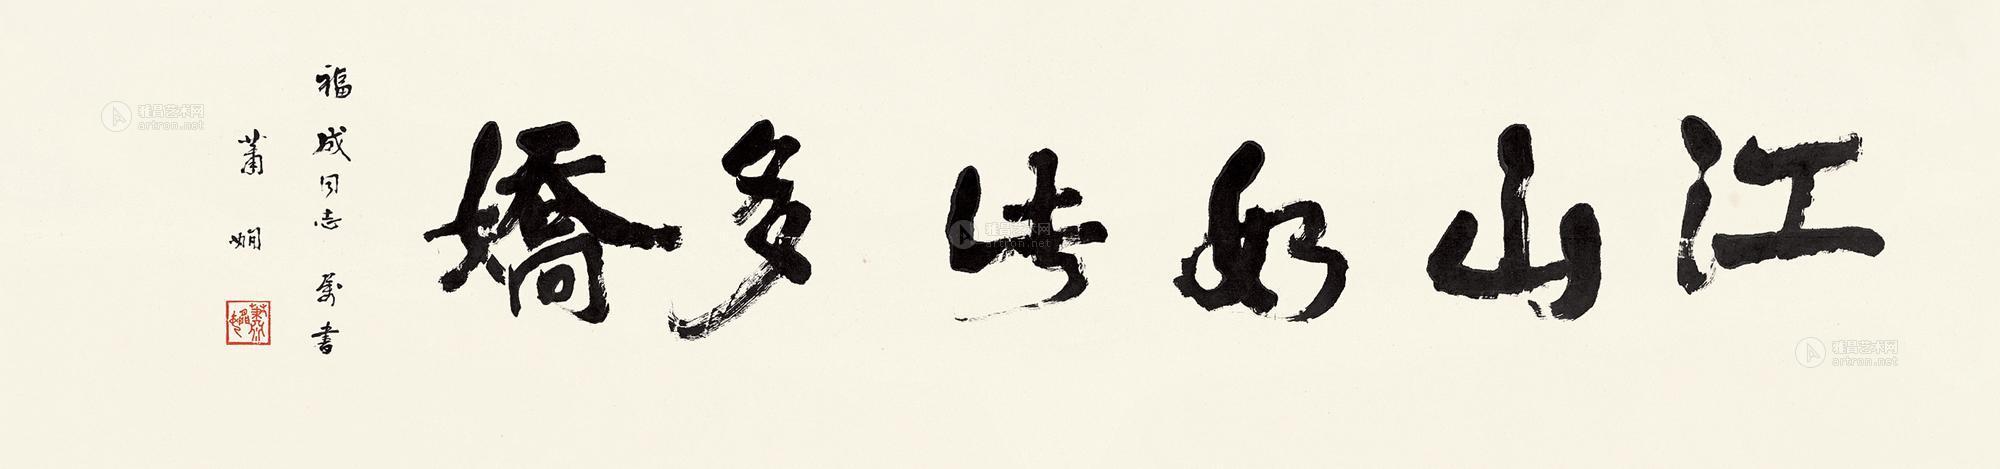 江山如此多嬌
福成同志 屬書
蕭嫻
雅昌艺术网
artron.net
雅昌艺术网
artron.net
雅昌艺术网
artron.net